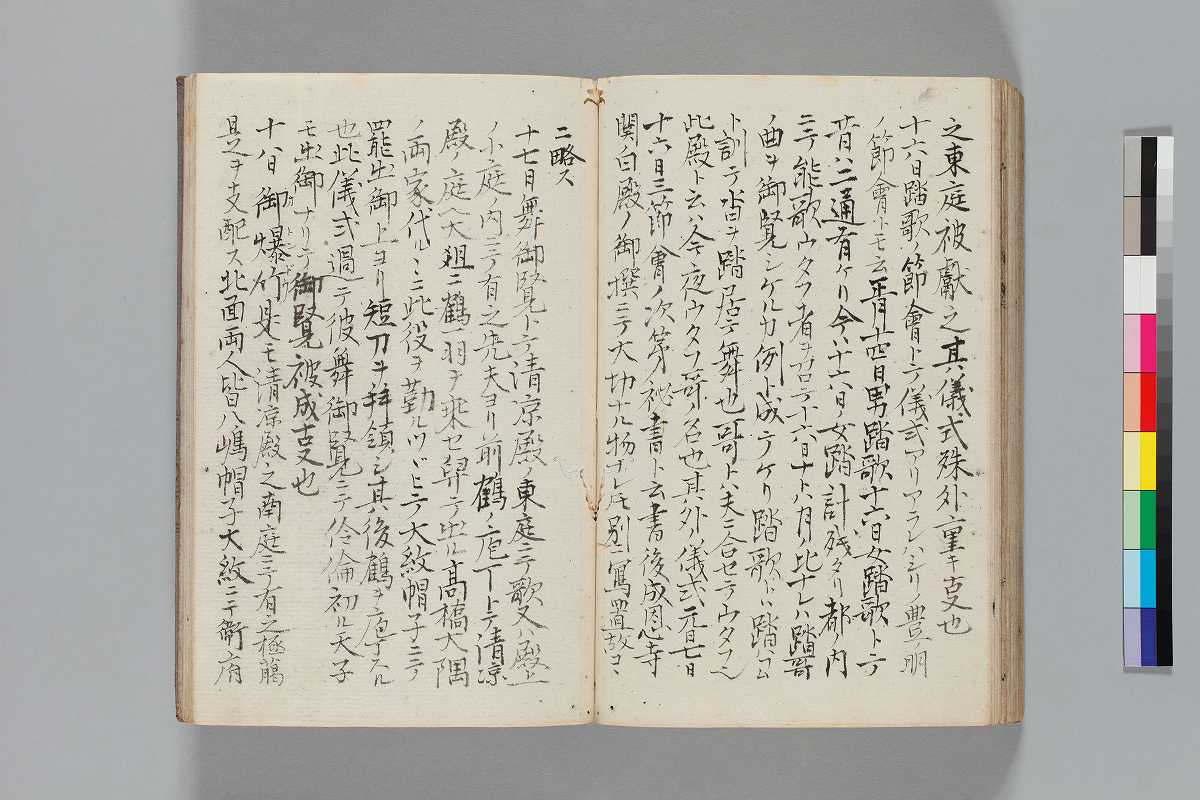 之東庭被獻之其儀式殊外重キ叓也
十六日踏歌ノ節會ト云儀式アリアラレハシリノ豊明
ノ節會トモ云正月十四日男踏歌十六日女踏歌トテ
昔ハ二通有ケリ今ハ十六日ノ女踏計残タリ都ノ内
ニテ能歌ウタフ者ヲ召テ十六日十八月ノ比ナレハ踏哥
ノ曲ヲ御覧シケルカ例ト成テケリ踏歌トハ踏コム
ト訓テ沓ヲ踏居テ舞也哥トハ夫ニ合セテウタフ
此殿ト云ハ今夜ウタフ哥ノ名也其外ノ儀式元日七日
十六日三節會ノ次第ノ祕書ト云書後成恩寺
関白殿ノ御撰ニテ大切ナル物ナレ𪜈別ニ寫置故コヽ
ニ略ス
十七日舞御覧ト云清凉殿ノ東庭ニテ歌又ハ殿上
ノ小庭ノ内ニテ有之先夫ヨリ前鶴ノ庖丁トテ清凉
殿ノ庭ヘ大俎ニ鶴一羽ヲ乘セ舁テ出ル高橋大隅
ノ両家代ル〻ニ此役ヲ勤ルツトニテ大紋帽子ニテ
罷出御上ヨリ短刀ヲ拝領シ其後鶴ヲ庖丁スル
也此儀式過テ彼舞御覧ニテ伶倫初ル天子
モ出御ナリテ御覧被成叓也
十八日御爆竹是モ清凉殿之南庭ニテ有之極﨟
是ヲ支配ス北面両人皆八嶋帽子大紋ニテ衛府